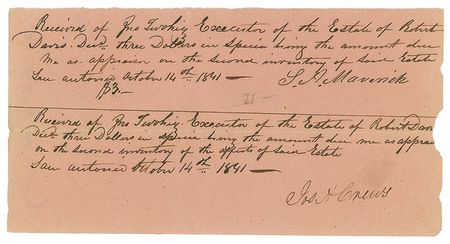 Received of Jno Twohig Executor of the Estate of Robert
Davis Decd three Dollars in Specie being the amount due
me as appraisor on the second inventory of said Estate
San Antonio October 14th 1841 —
$3— S. A. Maverick
Received of Jno Twohig Executor of the Estate of Robert Davis
Decd three Dollars in specie being the amount due me as appraisor
on the second inventory of the effects of said Estate
San Antonio October 14th 1841 —
Jos A Crews